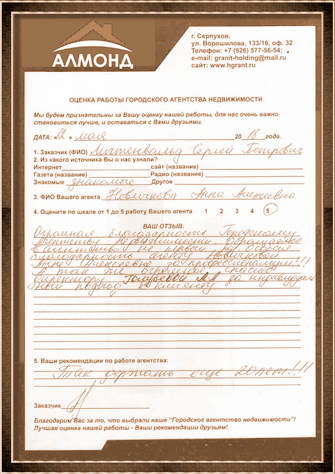 АЛМОНД
г. Серпухов,
ул. Ворошилова, 133/16, оф. 32
Телефон: +7 (926) 577-56-54;
e-mail: granit-holding@mail.ru
сайт: www.hgrant.ru
ОЦЕНКА РАБОТЫ ГОРОДСКОГО АГЕНТСТВА НЕДВИЖИМОСТИ
Мы будем признательны за Вашу оценку нашей работы, для нас очень важно
становиться лучше, и оставаться с Вами друзьями.
ДАТА: 22 » мая 20 18 года.
1. Заказчик (ФИО) Сергей Петрович
2. Из какого источника Вы о нас узнали?
Интернет сайт (название)
Газета (название) Радио (название)
Знакомые знакомые Другое
3. ФИО Вашего агента Новичкова Анна Алексеевна
4. Оцените по шкале от 1 до 5 работу Вашего агента 1 2 3 4 5
ВАШ ОТЗЫВ:
Огромная благодарность Городскому
Агентству Недвижимости.
благодарность агенту Новичковой
Анне Алексеевне за профессионализм!!!
А так же огромное спасибо
директору за индивидуаль
ный подход к клиенту
5. Ваши рекомендации по работе агентства:
Так держать еще 20 лет!!!
Заказчик
Благодарим Вас за то, что выбрали наше "Городское агентство недвижимости"!
Лучшая оценка нашей работы - Ваши рекомендации друзьям!